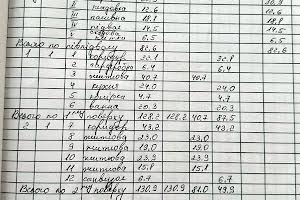 II кладова 12,6 12,6
III комівка 18,8 18,8
IV підвал 14,5 14,5
V 6,5 6,5
Всього по підвалу 82,6 82,8
1 1 1 коридор
2 гардеробна 6,4 6,4
3 житлова 40,7 40,7
4 кухня 24,0 24,0
5 4,7 4,7
6 ванна 20,3 20,3
Всього по 1му поверху 128,2 128,2 40,7 87,5
2 1 7 коридор 43,2 43,2
8 житлова 23,0 23,0
9 житлова 19,0 19,0
10 житлова 23,9 23,9
11 житлова 15,1 15,1
12 санвузол 6,7 6,7
Всього по 2му поверху 130,9 130,9 81,0 49,9